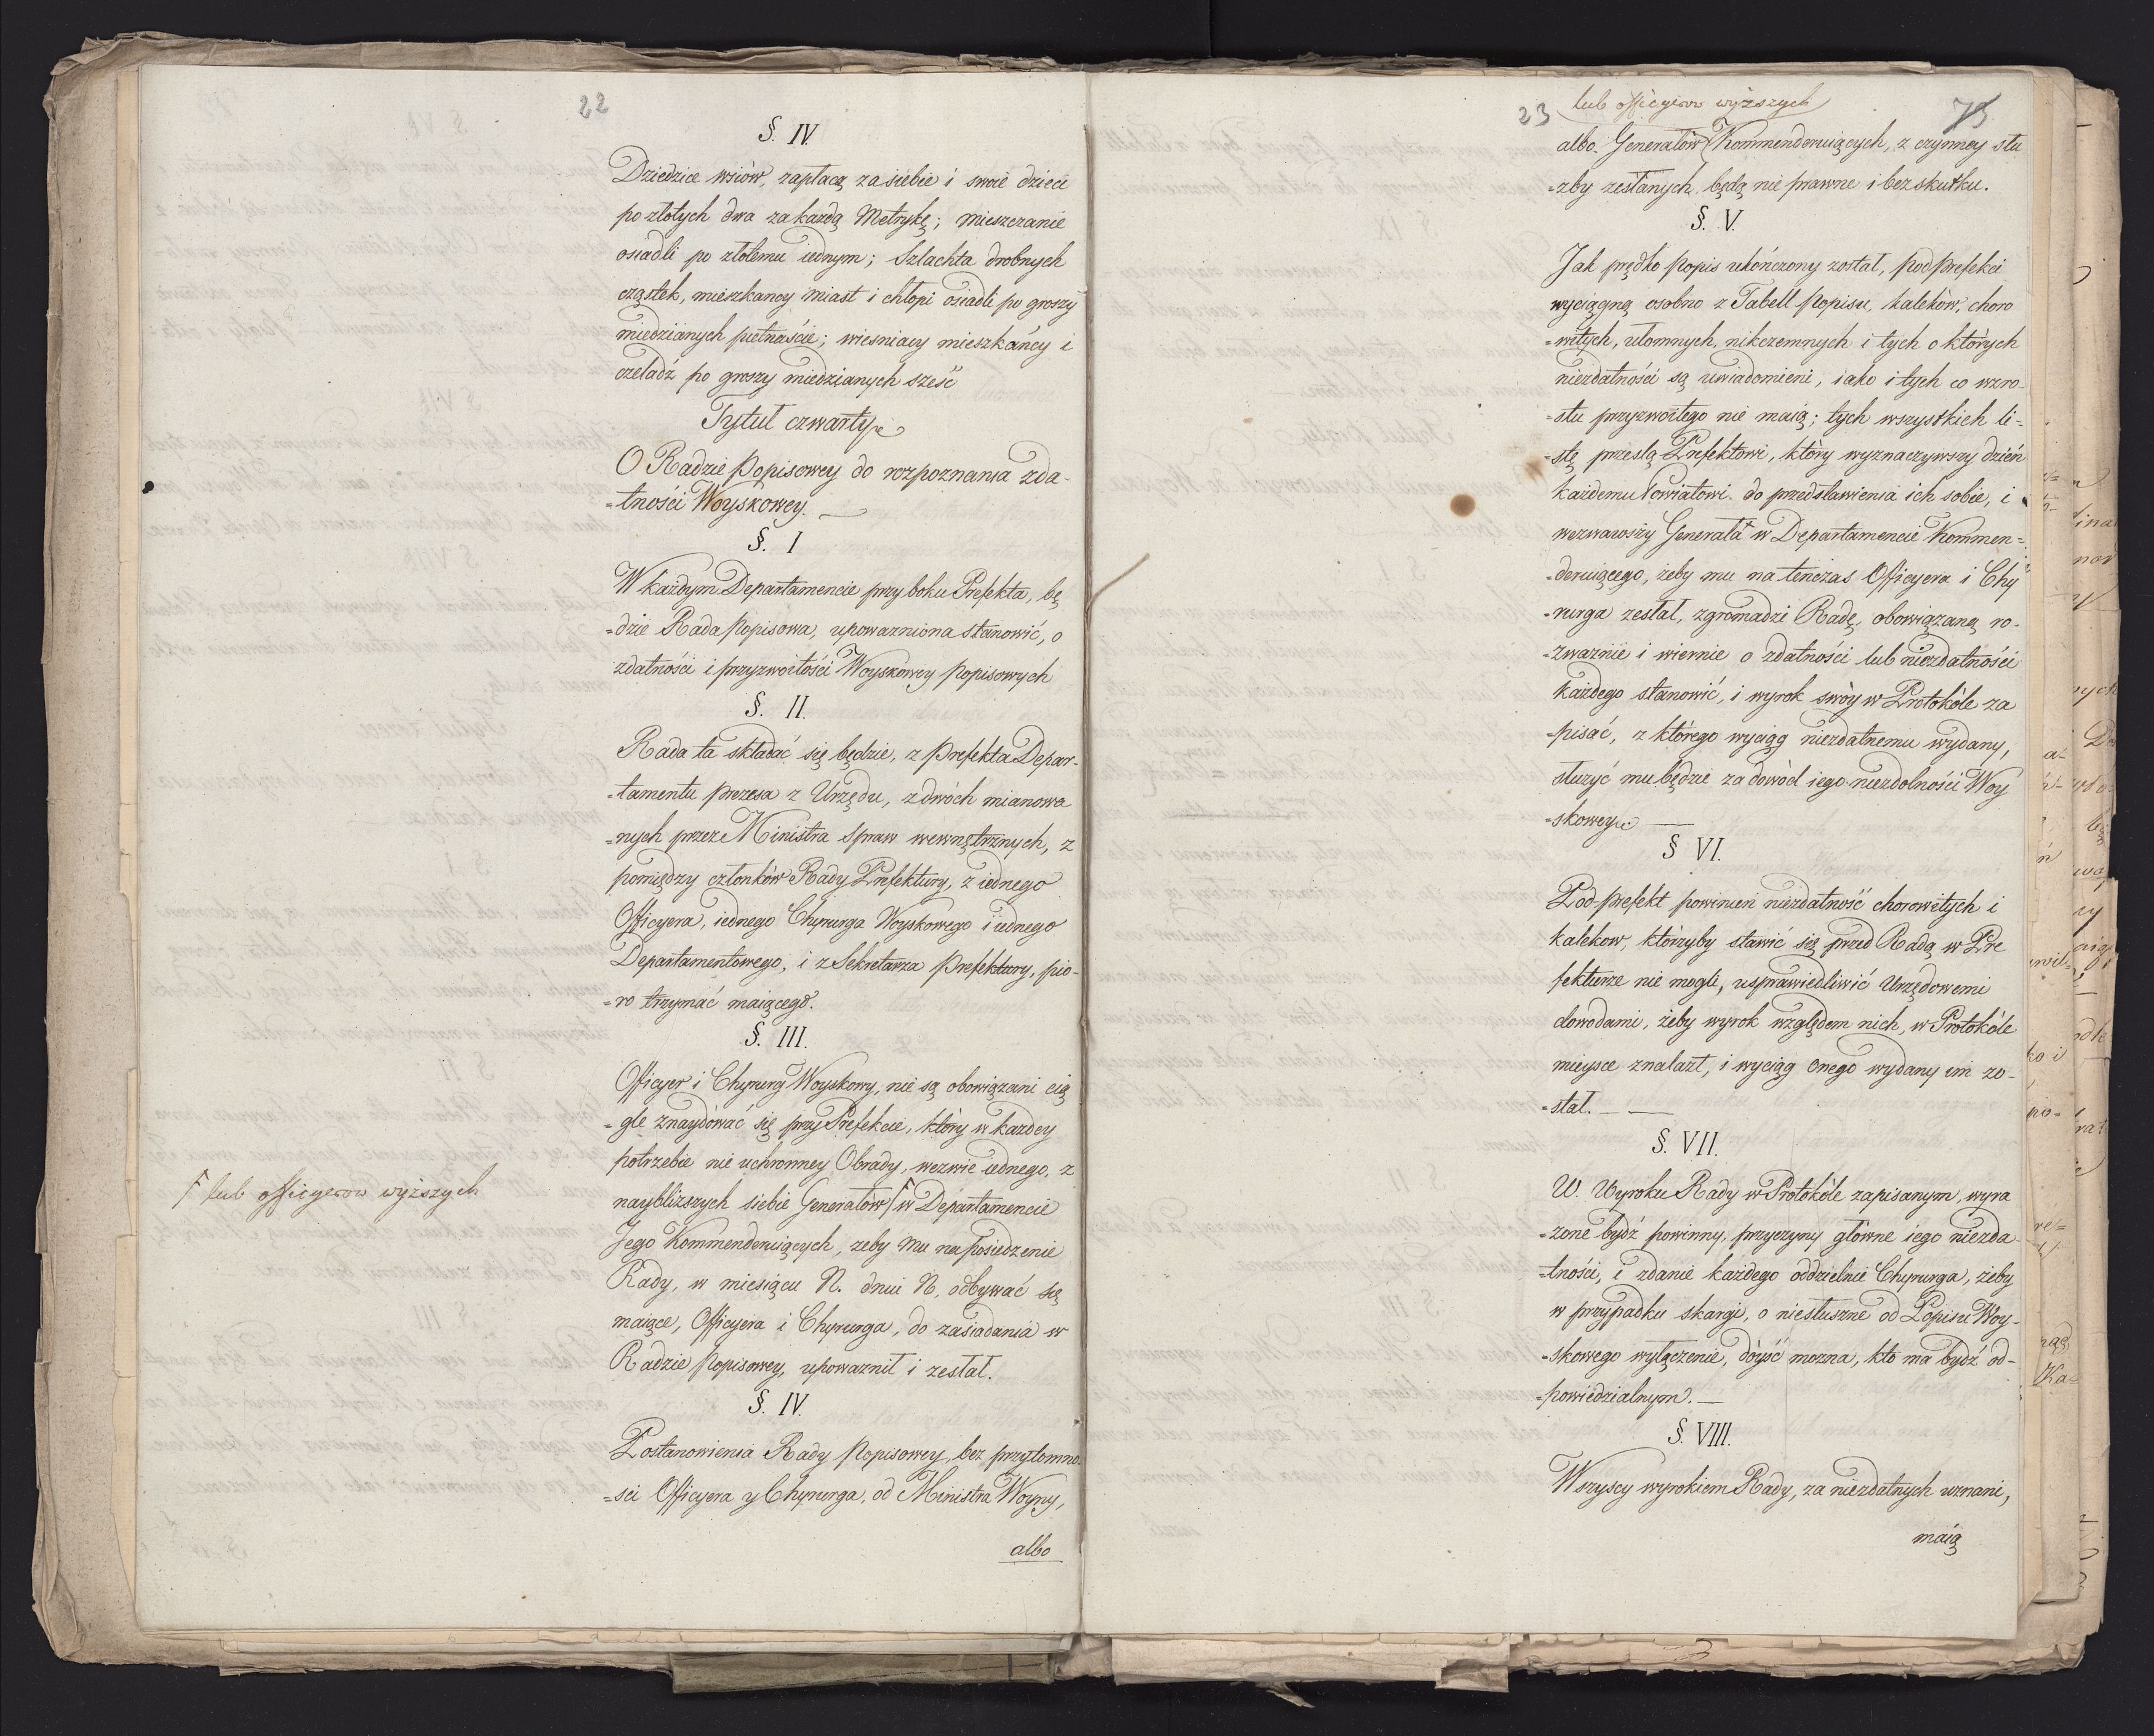 22
§. IV.
Dziedzice wsiów, zapłacą za siebie i swoie dzieci
po złotych dwa za każdą Metrykę; mieszczanie
osiadli po złotemu iednym; Szlachta drobnych
cząstek, mieszkancy miast i chłopi osiadli po groszy
miedzianych piętnaście; wiesniacy mieszkańcy i
czeladź po groszy miedzianych sześć
Tytuł czwarty
O Radzie Popisowey do rozpoznania zda-
=tności Woyskowey.
§. I
W każdym Departamencie przy boku Prefekta, bę
=dzie Rada Popisowa, upoważniona stanowić, o
zdatności i przyzwoitości Woyskowey popisowych
§. II.
Rada ta składać się będzie, z Prefekta Depar-
=tamentu Prezesa z Urzędu, z dwóch mianowa
=nych przez Ministra Spraw wewnętrznych, z
pomiędzy członków Rady Prefektury, z iednego
Officyera, iednego Chyrurga Woyskowego i iednego
Departamentowego, i z Sekretarza Prefektury, pio-
=ro trzymać maiącego.
§. III.
Officyer i Chyrurg Woyskowy, nie są obowiązani cią
=gle znaydować się przy Prefekcie, który w kazdey
potrzebie nie uchronney Obrady, wezwie iednego, z
naybliższych siebie Generałów Ⱶ w Departamencie
Ⱶ lub officyerow wyższych
Jego Kommenderuiących, zeby mu na posiedzenie
Rady, w miesiącu N. dniu N. odbywać się
maiące, Officyera i Chyrurga, do zasiadania w
Radzie Popisowey, upoważnił i zesłał.
§. IV.
Postanowienia Rady Popisowey, bez przytomno
=sci Officyera y Chyrurga, od Ministra Woyny,
albo
23 lub officyerow wyższych 75
albo Generałów Kommenderuiących, z czynney słu
=zby zesłanych, będą nie prawne i bez skutku.
§. V.
Jak prędko Popis ukończony został, Podprefekci
wyciągną osobno z Tabell Popisu, kaleków, choro
=witych, ułomnych, nikczemnych i tych o których
niezdatności są uwiadomieni, iako i tych co wzro-
=stu przyzwoitego nie maią; tych wszystkich li=
=stę prześlą Prefektowi, który wyznaczywszy dzień
każdemu Powiatowi do przedstawienia ich sobie, i
wezwawszy Generała w Departamencie Kommen=
=deruiącego, żeby mu na tenczas Officyera i Chy
=rurga zesłał, zgromadzi Radę, obowiązaną ro-
=zważnie i wiernie o zdatności lub niezdatności
każdego stanowić, i wyrok swóy w Protokóle za
=pisać, z którego wyciąg niezdatnemu wydany,
służyć mu będzie za dowód iego niezdolności Woy
=skowey
§ VI.
Pod-prefekt powinien niezdatność chorowitych i
kalekow, którzyby stawić się przed Radą w Pre
fekturze nie mogli, usprawiedliwić Urzędowemi
dowodami, żeby wyrok względem nich, w Protokóle
mieysce znalazł, i wyciąg onego wydany im zo-
=stał.
§. VII.
W. Wyroku Rady w Protokóle zapisanym, wyra
=zone bydź powinny, przyczyny główne iego niezda
=tności, i zdanie każdego oddzielnie Chyrurga, żeby
w przypadku skargi, o niesłuszne od Popisu Woy-
=skowego wyłączenie, dóyść mozna, kto ma bydź od-
=powiedzialnym.
§. VIII.
Wszyscy wyrokiem Rady, za niezdatnych uznani,
maią